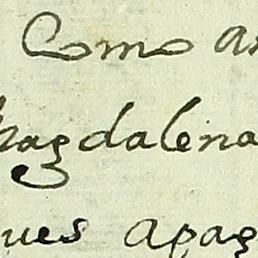 Como as
Magdalena
ques apag